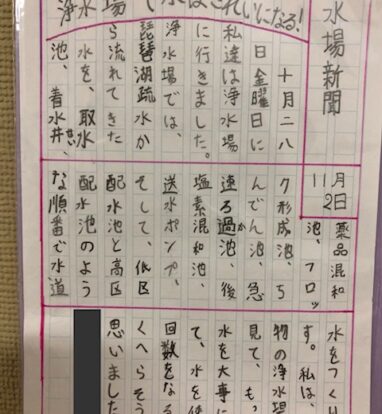 水場新聞
浄水場で水はきれいになる!
十月二八
日金曜日に
私達は浄水場
に行きました。
浄水場では、
琵琶湖疏水か
ら流れてきた
水を、取水
池、着水井、
せい
11月2日
薬品混和
池、フロッ
ク形成池、ち
んでん池、急
速ろ過池、後
か
塩素混和池、
送水ポンプ、
そして、低区
配水池と高区
配水池のよう
な順番で水道
水をつく
す。私は、
物の浄水場
見て、も
水を大事に
て、水を
回数をなる
くへらそう
思いました